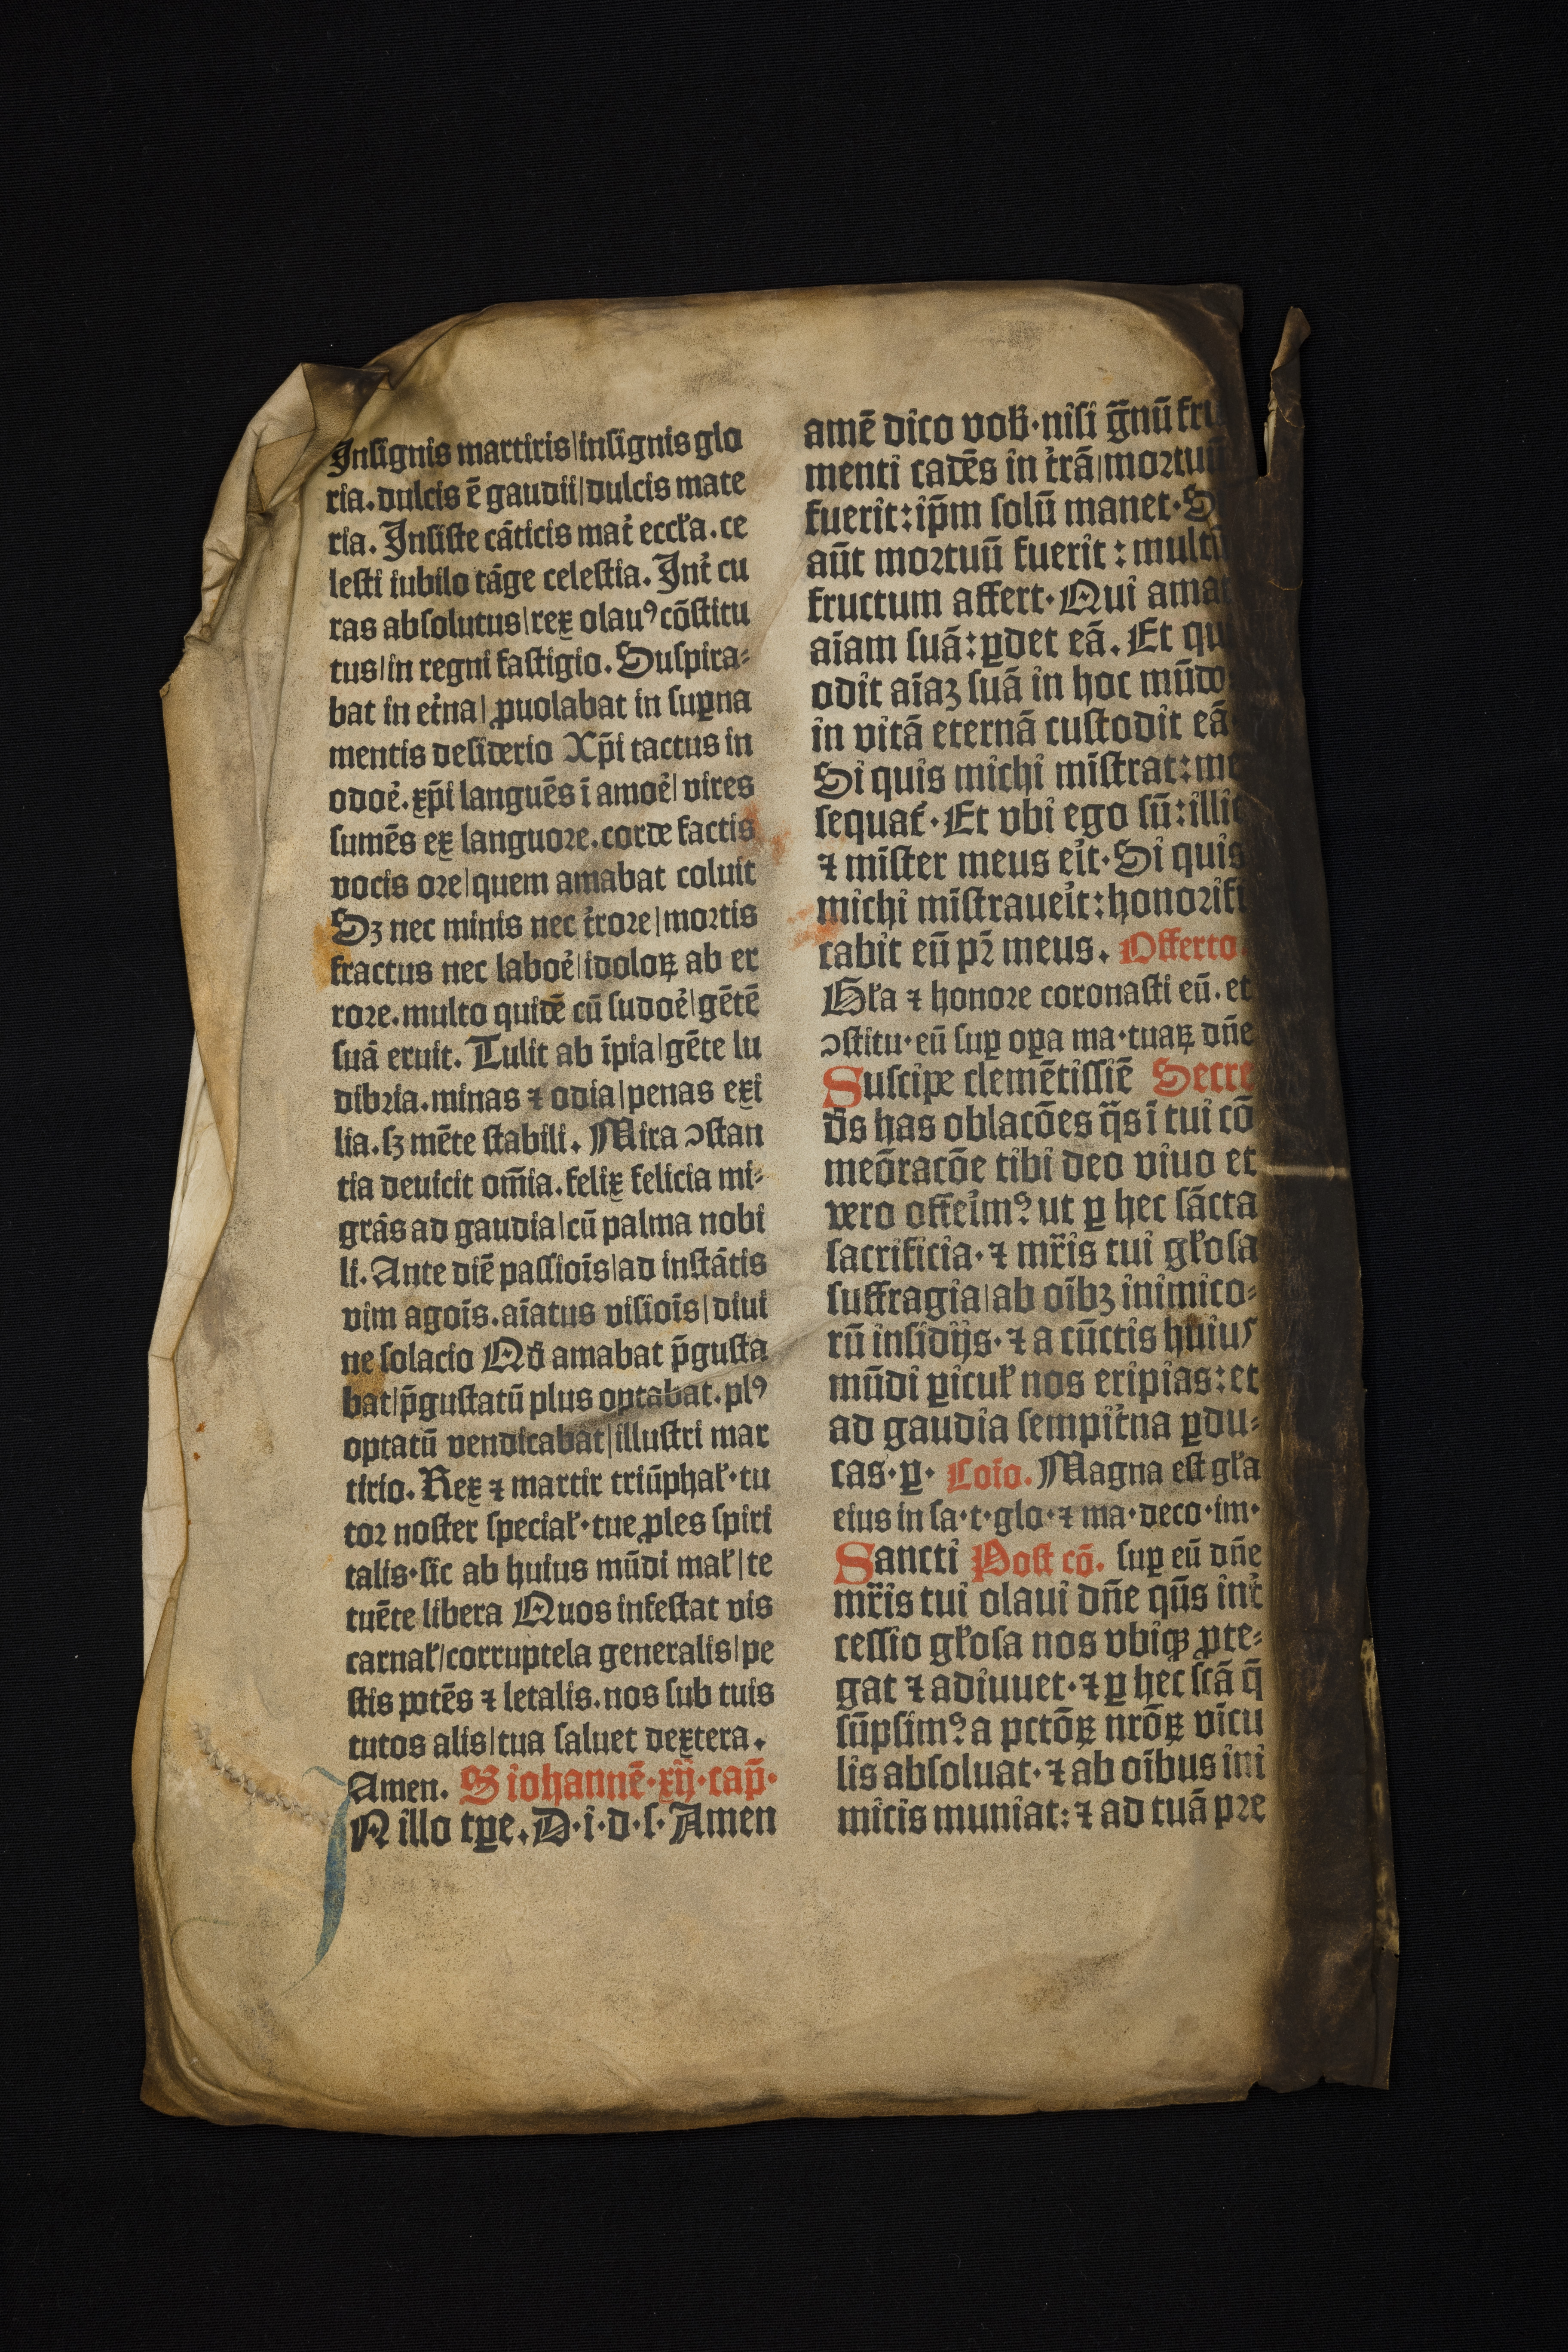 Insignis martiris|insignis glo
ria.dulcis ē gaudii|dulcis mate
ria. Insiste cāticis mat̉ eccła.ce
lesti iubilo tāge celestia. Int̉ cu
ras absolutus|rex olauꝰ cōstitu
tus|in regni fastigio. Suspira⸗
bat in et̉na|ꝓuolabat in suꝑna
mentis desiderio Xp̄i tactus in
odoꝛ̉.xp̄i languēs ī amoꝛ̉|vires
sumēs ex languoꝛe.corde factis
vocis oꝛe|quem amabat coluit
Sꝫ nec minis nec t̉roꝛe|moꝛtis
fractus nec laboꝛ̉|idoloꝝ ab er
roꝛe.multo quidē cū sudoꝛ̉|gētē
suā eruit. Tulit ab īpia|gēte lu
dibꝛia.minas ⁊ odia|penas exi
lia.sꝫ mēte stabili. Mira ↄstan
tia deuicit om̄ia.felix felicia mi⸗
grās ad gaudia|cū palma nobi
li. Ante diē passiois̄|ad instātis
vim agois̄.aīatus visiois̄|diui
ne solacio Qd̄ amabat p̄gusta
bat|p̄gustatū plus optabat.plꝰ
optatū vendicabat|illustri mar
tirio. Rex ⁊ martir triūphał·tu
toꝛ noster speciał·tue ꝓles spiri
talis·sic ab huius mūdi mał|te
tuēte libera Quos infestat vis
carnał|corruptela generalis|pe
stis potēs ⁊ letalis.nos sub tuis
tutos alis|tua saluet dextera.
Amen. S iohannē·xij·cap̄·
N illo tꝑe. D·i·d·s· Amen
amē dico vob̄·nisi g̅nū fru
menti cadēs in t̉rā|moꝛtuū
fuerit:ip̄m solū manet·S
aūt moꝛtuū fuerit: multū
fructum affert·Qui amat
aīam suā:ꝑdet eā. Et qu
odit aīaꝫ suā in hoc mūdo
in vitā eternā custodit eā
Si quis michi mīstrat:me
sequat᷑·Et vbi ego sū:illic
⁊ mīster meus eit̉·Si quis
michi mīstraueit̉:honoꝛifi
cabit eū pꝛ̄ meus. Offerto
Gła ⁊ honoꝛe coronasti eū.et
ↄstitu·eū suꝑ oꝑa ma·tuaꝝ dn̄e
Suscipe clemētissiē Secre
ds̄ has oblacōes q̄s ī tui cō
meōracōe tibi deo viuo et
vero offeim̉ꝰ ut ꝑ hec sācta
sacrificia·⁊ mr̄is tui głosa
suffragia|ab oībꝫ inimico⸗
rū insidijs·⁊ a cūctis huius
mūdi ꝑicuł nos eripias:et
ad gaudia sempit̉na ꝑdu⸗
cas·ꝑ· Coīo. Magna est gła
eius in sa·t·glo·⁊ ma·deco·im·
Sancti Post cō. suꝑ eū dn̄e
mr̄is tui olaui dn̄e qūs int̉
cessio głosa nos vbiqꝫ ꝓte⸗
gat ⁊ adiuuet·⁊ ꝑ hec scā q̄
sūpsimꝰ a pctōꝝ nrōꝝ vicu
lis absoluat·⁊ ab oībus ini
micis muniat:⁊ ad tuā pꝛe